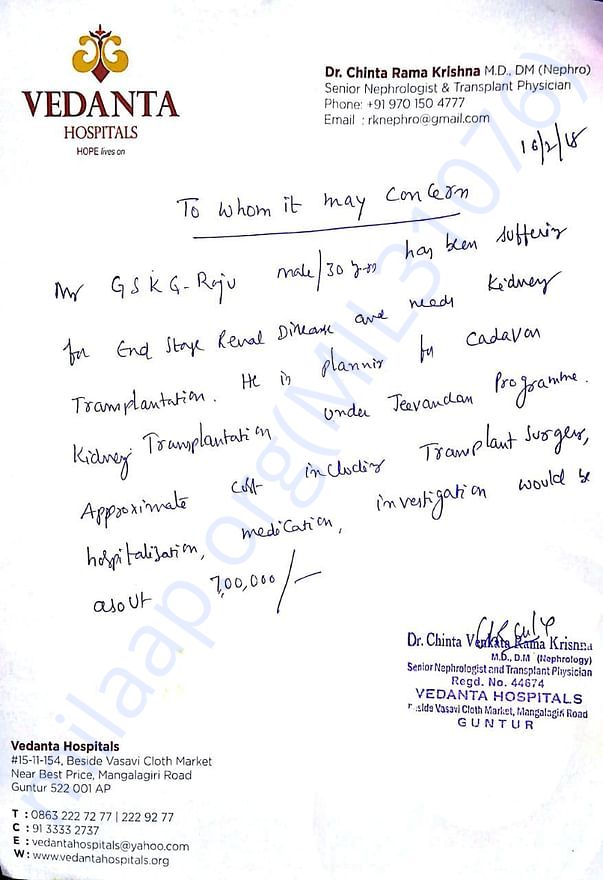 VEDANTA
HOSPITALS
HOPE lives on
Dr. Chinta Rama Krishna M.D., DM (Nephro)
Senior Nephrologist & Transplant Physician
Phone: +91 970 150 4777
Email : rknephro@gmail.com
16/2/18
To whom it may concern
Mr G S K G. Raju male/30 yrs has been suffering
for End Stage Renal Disease and needs Kidney
Transplantation. He is plannig for Cadavar
Kidney Transplantation under Jeevandan Programme.
Approximate cost including Transplant Surgery,
hospitalisation, medication, investigation would be
about 7,00,000/-
Dr. Chinta Venkata Rama Krisnna
M.D., D.M (Nephrology)
Senior Nephrologist and Transplant Physician
Regd. No. 44674
VEDANTA HOSPITALS
Beside Vasavi Cloth Market, Mangalagiri Road
GUNTUR
Vedanta Hospitals
#15-11-154, Beside Vasavi Cloth Market
Near Best Price, Mangalagiri Road
Guntur 522 001 AP
T : 0863 222 72 77 | 222 92 77
C : 91 3333 2737
E : vedantahospitals@yahoo.com
W : www.vedantahospitals.org
milaap.org(MIL31076)